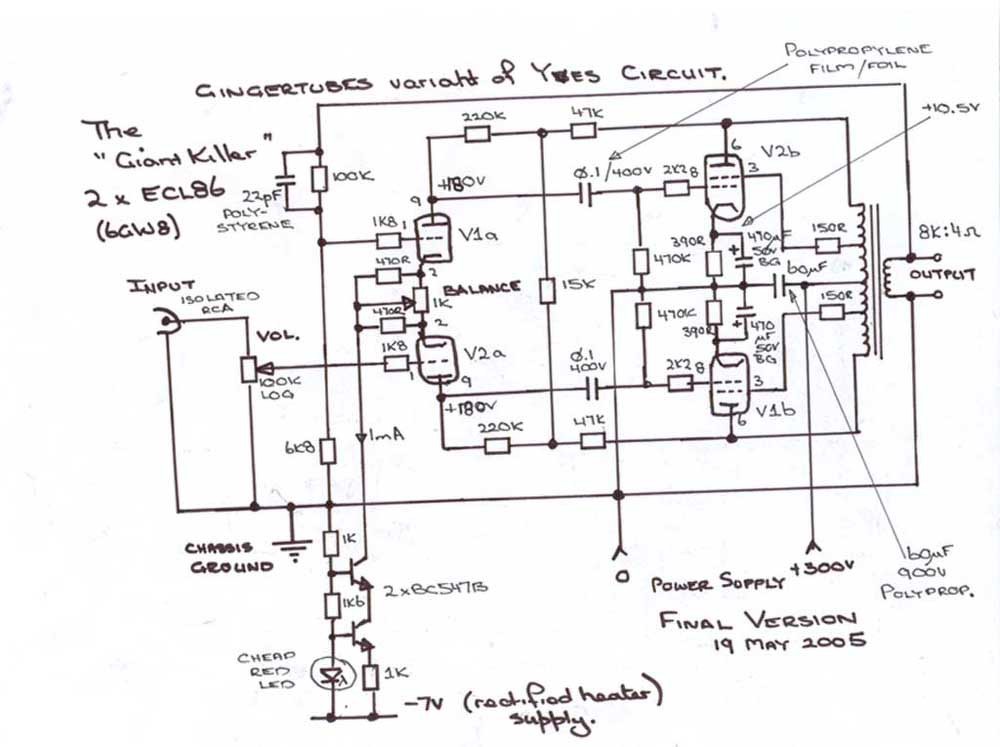 POLYPROPYLENE
FILM/FOIL
GINGERTUBES variant of YVES CIRCUIT.
The
"Giant Killer"
2 x ECL86
(6GW8)
+10.5V
220K
47K
6
V2b
22pF
POLY-
STYRENE
100K
+180V
9
0.1/400V
2K2
8
3
1K8
1
V1a
470R
2
390R
470K
470µF
50V
BG
150R
8K:4Ω
INPUT
ISOLATED
RCA
BALANCE
1K
15K
60µF
OUTPUT
VOL.
470R
2
470K
390R
470
µF
50V
BG
150R
1K8
1
V2a
9
0.1
400V
2K2
8
3
100K
LOG
+180V
V1b
6
6K8
1mA
220K
47K
CHASSIS
GROUND
1K
2xBC547B
0
POWER SUPPLY
+300V
60µF
900V
POLYPROP.
1K6
FINAL VERSION
19 MAY 2005
CHEAP
RED
LED
1K
-7V (rectified heater)
supply.